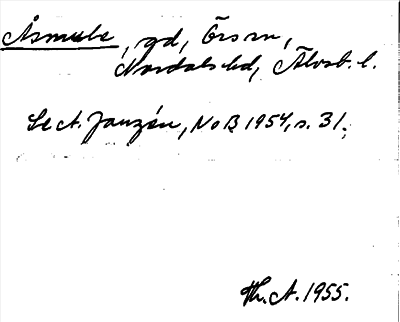 Åsmule, gd, Örs sn,
Nordals hd, Älvsb. l.
Se A. Janzén, NoB 1954, s. 31.
Th. A. 1955.